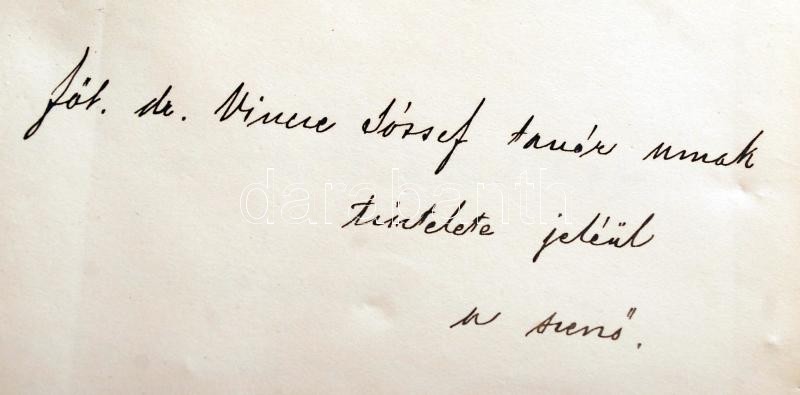 főt. dr. Vincze József tanár urnak
darabanth
tisztelete jeléül
a szerző.